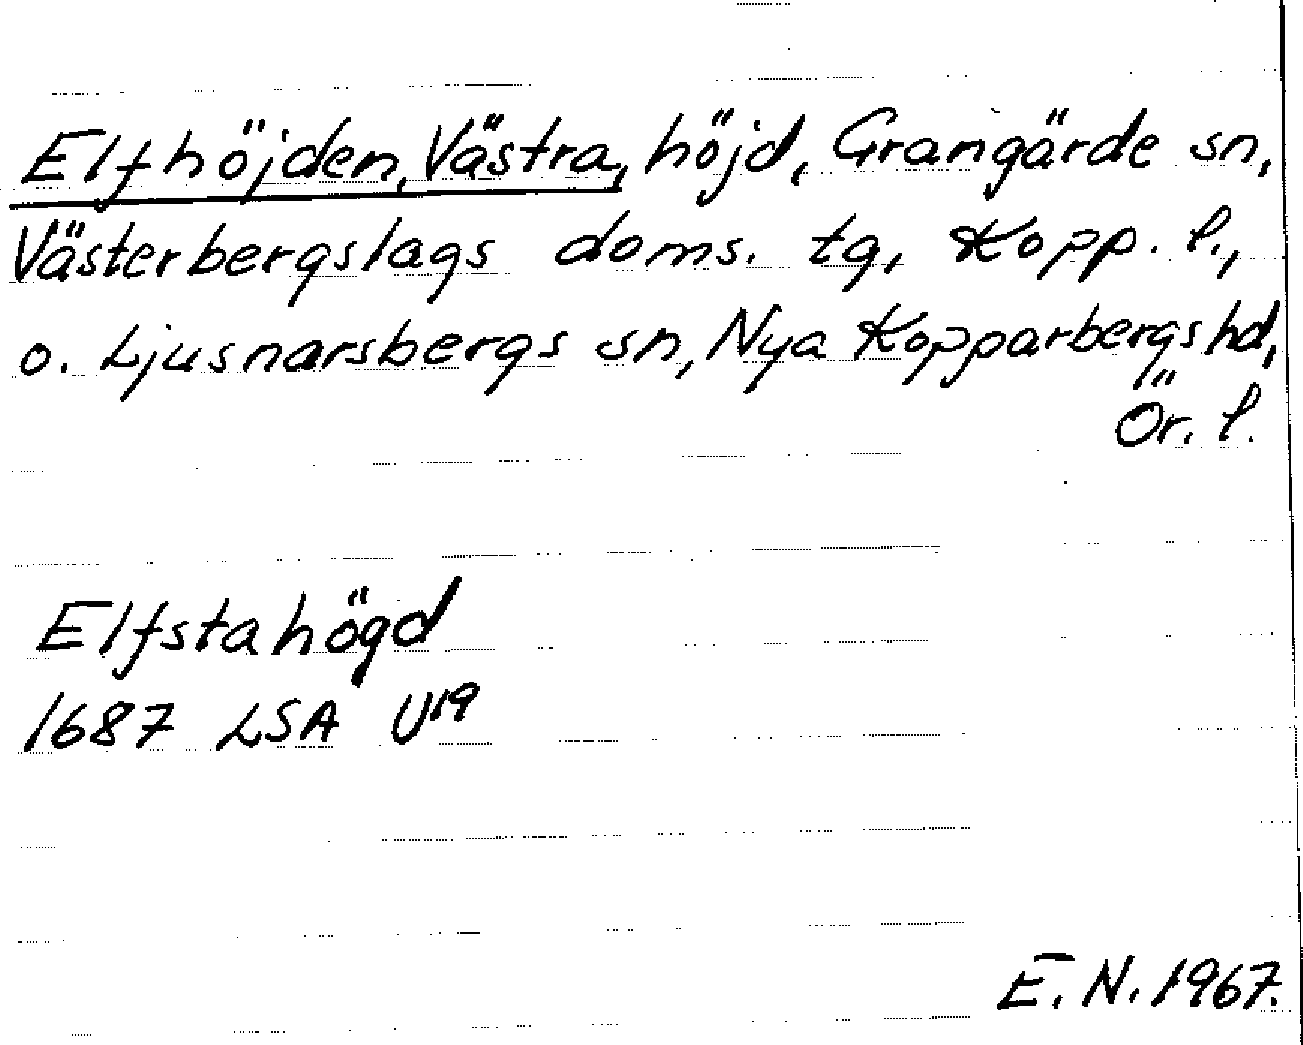 Elfhöjden, Västra, höjd, Grangärde sn,
Västerbergslags doms. tg, Kopp. l.,
o. Ljusnarsbergs sn, Nya Kopparbergs hd,
Ör. l.
Elfstahögd
1687 LSA U19
E. N. 1967.